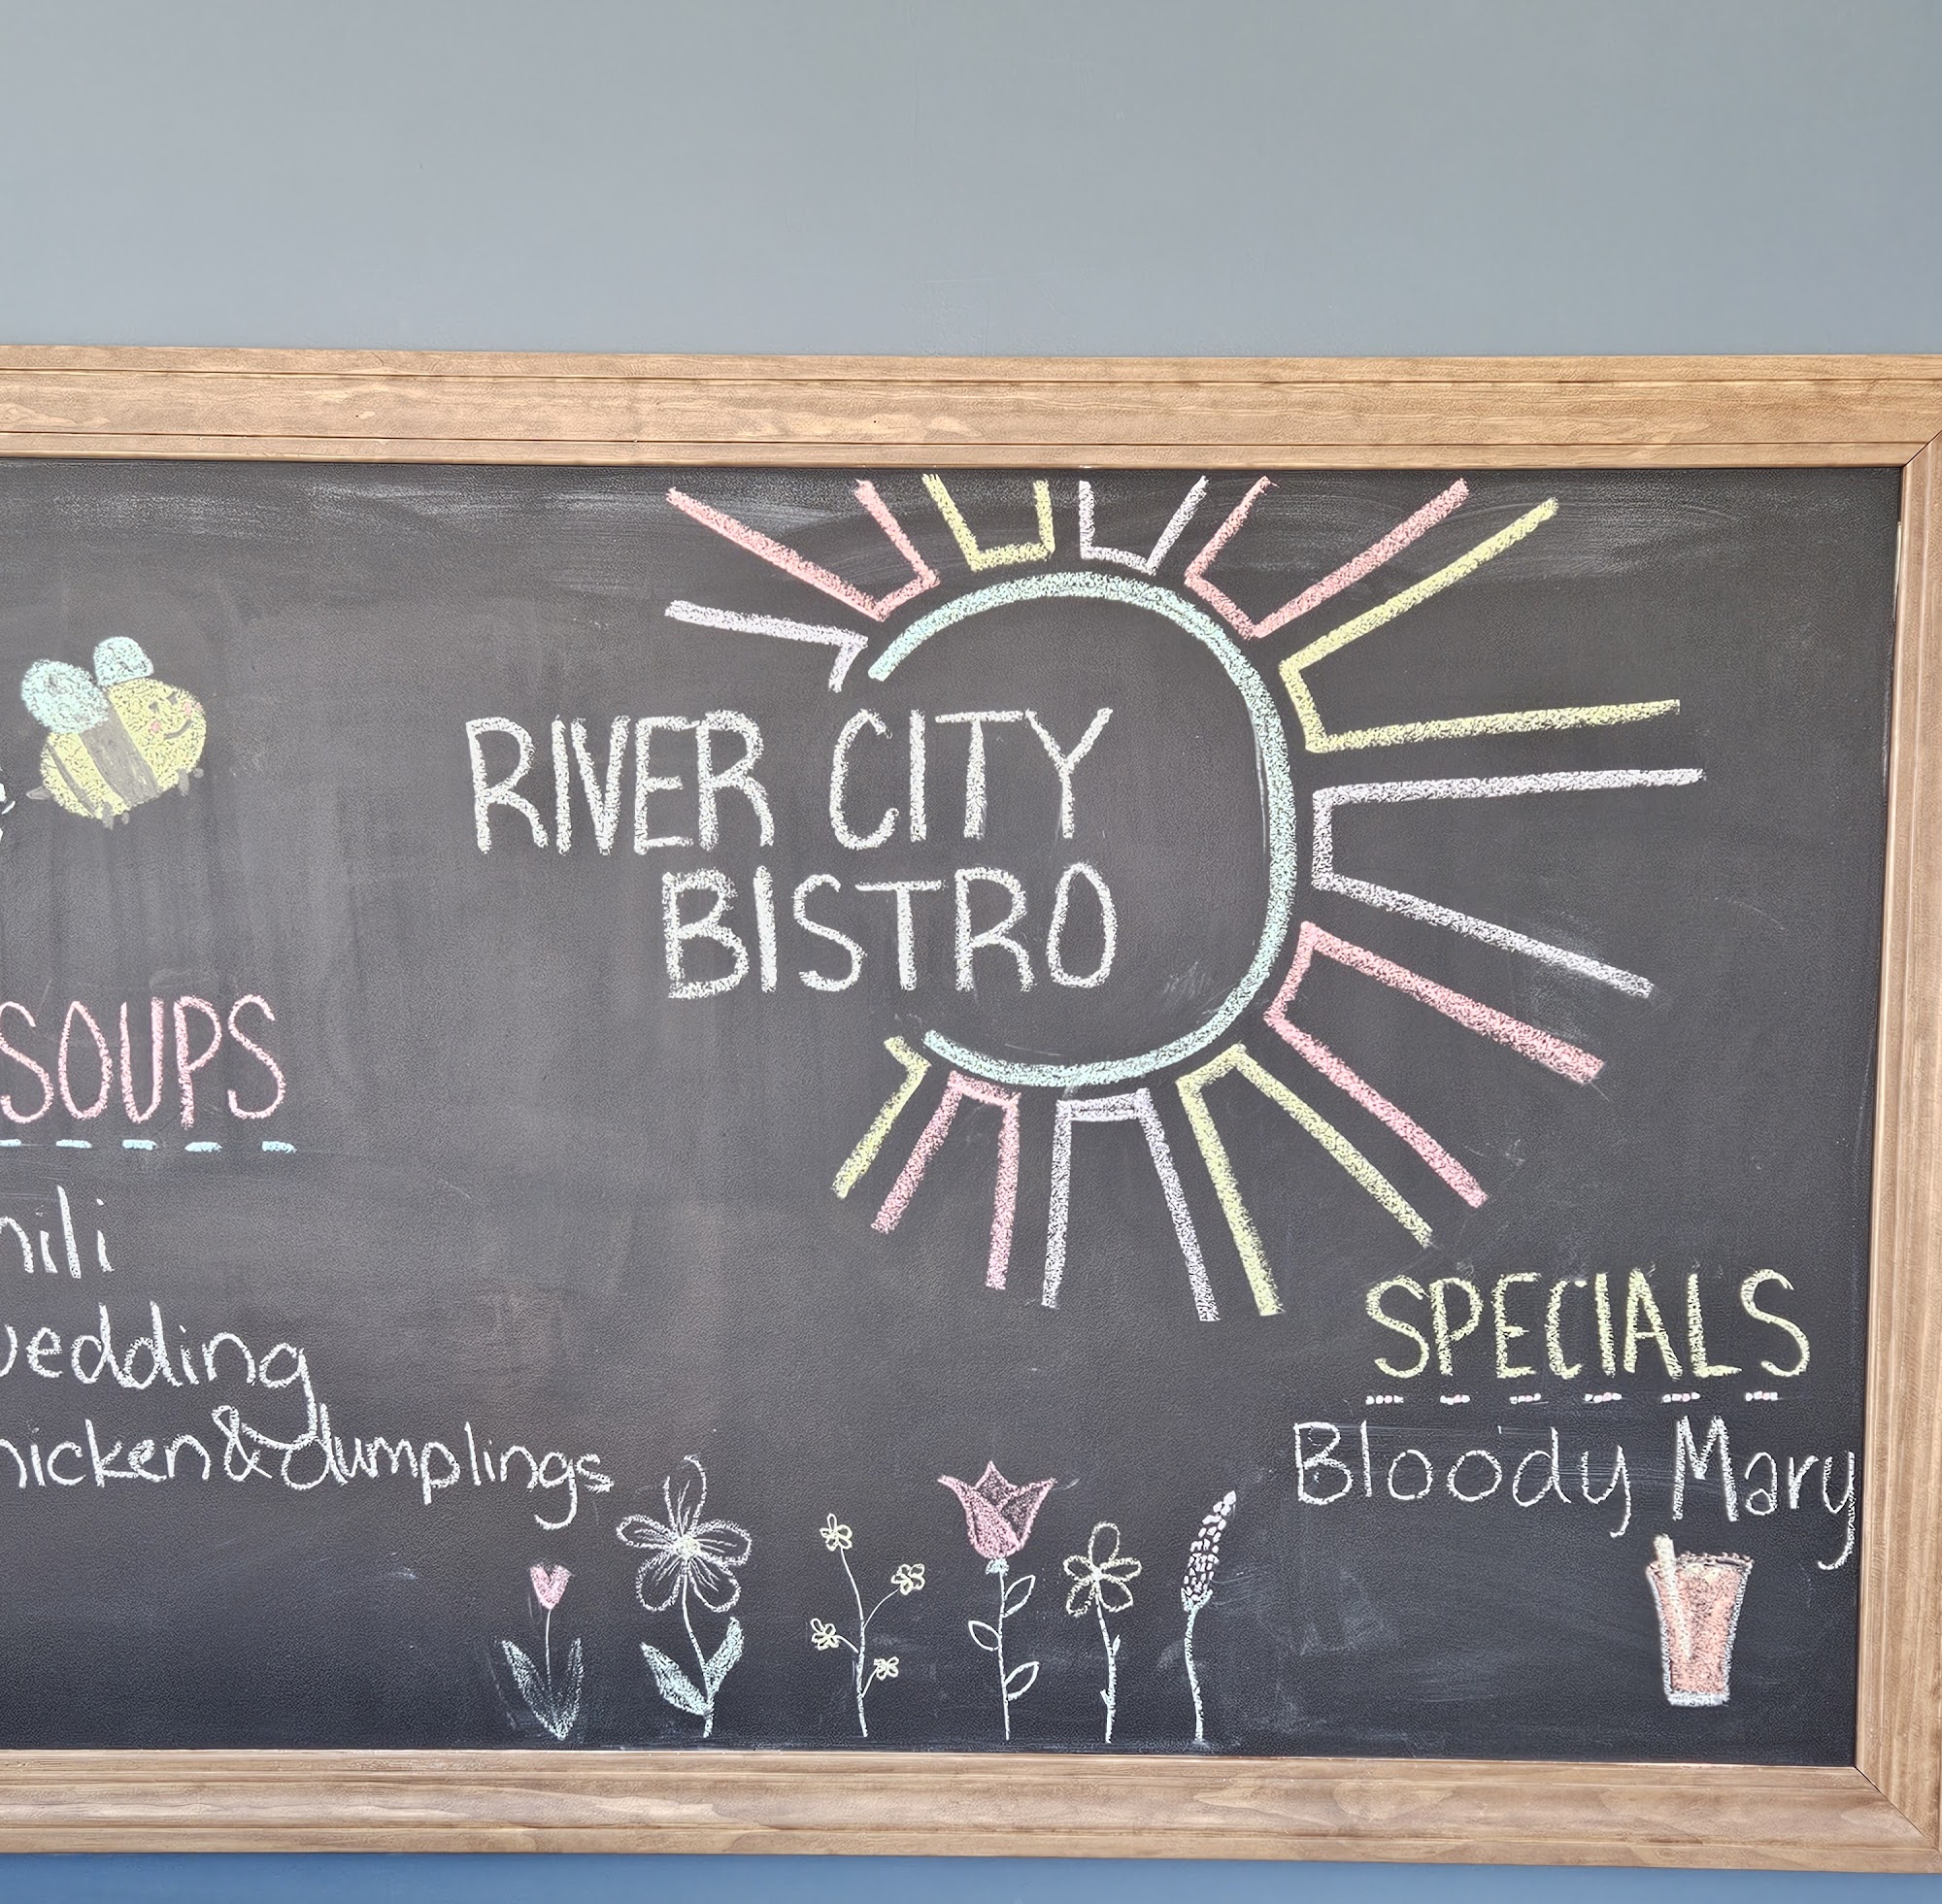 RIVER CITY
BISTRO
SOUPS
hili
wedding
hicken & dumplings
SPECIALS
Bloody Mary